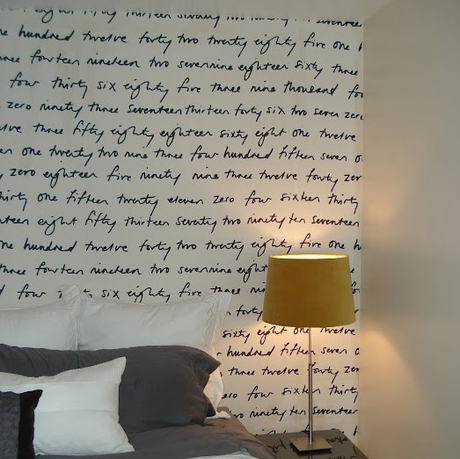 eight fifty thirteen seventy two ninety ten seventeen
one hundred twelve forty two twenty eighty five one h
three fourteen nineteen two seven nine eighteen sixty three
four thirty six eighty five three nine thousand fo
zero ninety three seventeen thirteen forty six two seven zero
elve three fifty eighty eighteen sixty eight one twelve
en one twenty two nine three four hundred fifteen seven o
y zero eighteen five ninety nine three twelve forty zer
hirty one fifteen twenty eleven zero four sixteen thirty
nteen eight fifty thirteen seventy two ninety ten seventeen
one hundred twelve forty two twenty eighty five one h
three fourteen nineteen two seven nine eighteen three
four thirty six eighty five three
forty
sixty eight one twelve
hundred fifteen seven o
three twelve forty zero
four sixteen thirty
two ninety ten seventeen